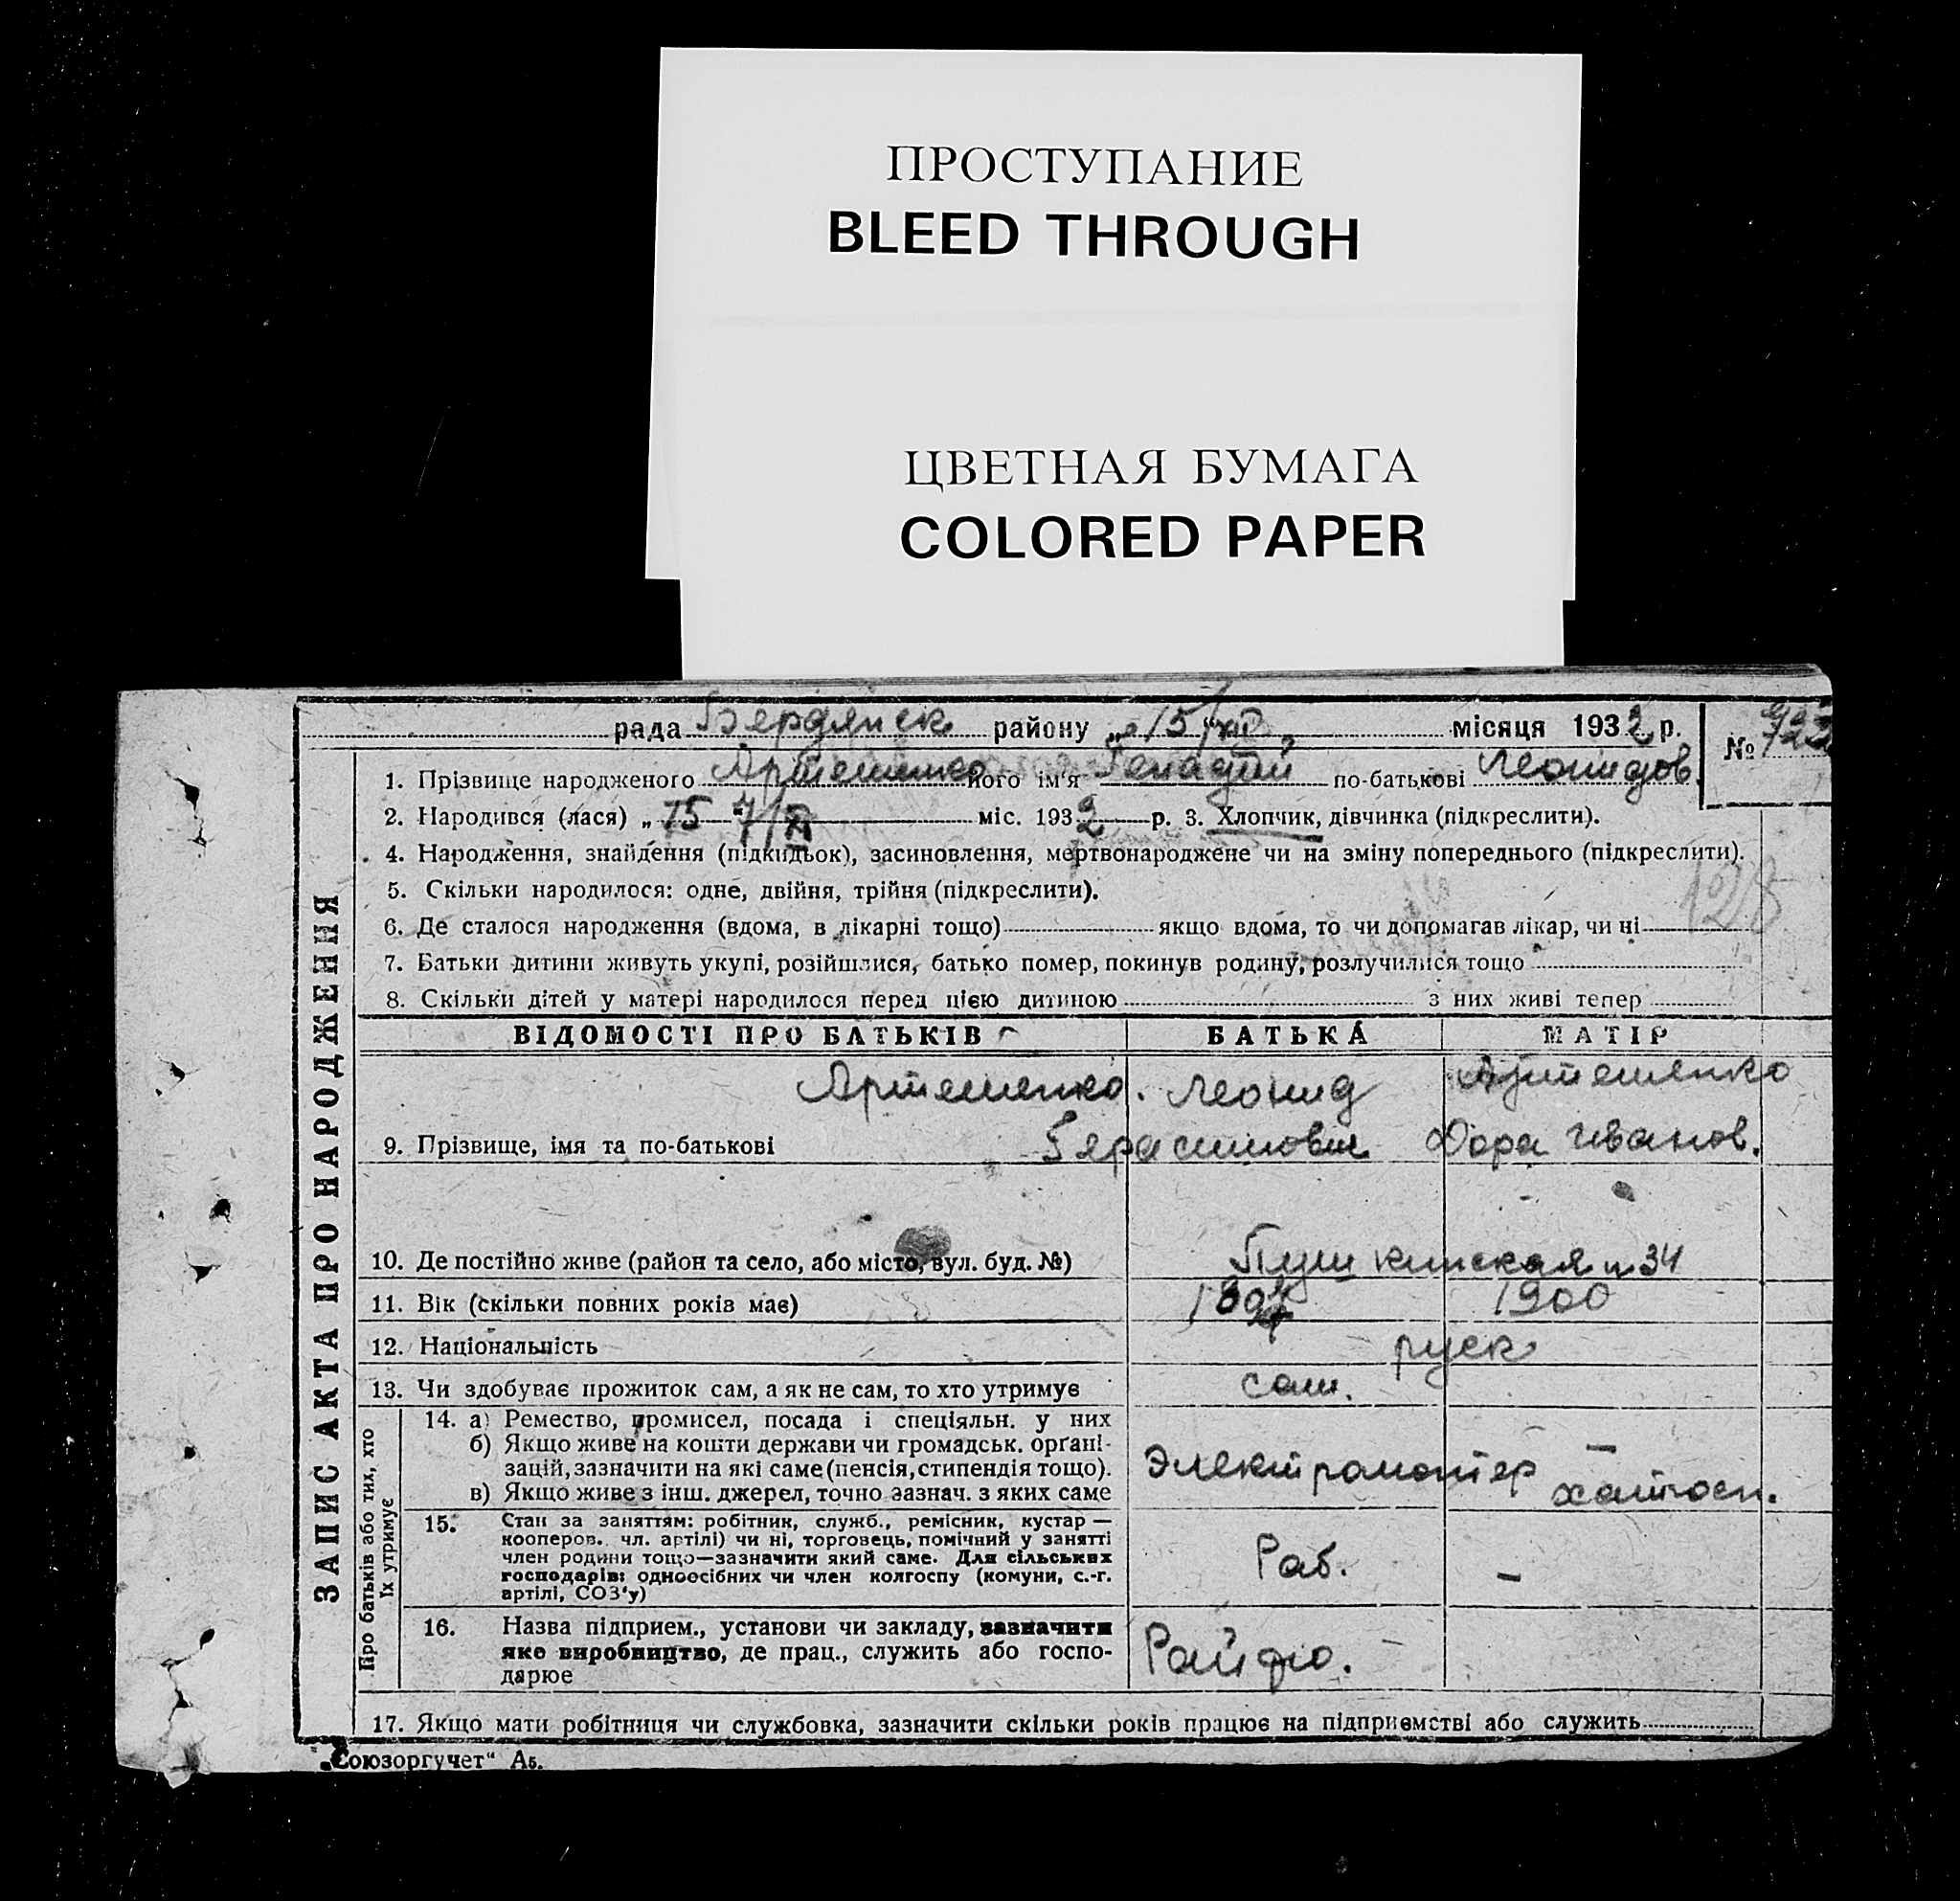 ПРОСТУПАНИЕ
BLEED THROUGH
ЦВЕТНАЯ БУМАГА
COLORED PAPER
рада Бердянск району „ 15 “ місяця 1932 р. №
1. Прізвище народженого Артеменко його ім'я Генадий по-батькові Леонидов.
2. Народився (лася) „ 15 міс. 1932 р. 3. Хлопчик, дівчинка (підкреслити).
4. Народження, знайдення (підкидьок), засиновлення, мертвонароджене чи на зміну попереднього (підкреслити).
5. Скільки народилося: одне, двійня, трійня (підкреслити).
6. Де сталося народження (вдома, в лікарні тощо) якщо вдома, то чи допомагав лікар, чи ні
7. Батьки дитини живуть укупі, розійшлися, батько помер, покинув родину, розлучилися тощо
8. Скільки дітей у матері народилося перед цією дитиною з них живі тепер
ЗАПИС АКТА ПРО НАРОДЖЕННЯ
ВІДОМОСТІ ПРО БАТЬКІВ БАТЬКА МАТІР
Артеменко. Леонид Артеменко
9. Прізвище, імя та по-батькові Герасимович Дора Иванов.
10. Де постійно живе (район та село, або місто, вул. буд. №) Пушкинская 34
11. Вік (скільки повних років має) 1900
12. Національність руск
13. Чи здобуває прожиток сам, а як не сам, то хто утримує сам.
Про батьків або тих, хто
їх утримує
14. а) Ремество, промисел, посада і спеціяльн. у них
б) Якщо живе на кошти держави чи громадськ. органі-
зацій, зазначити на які саме (пенсія, стипендія тощо). Электромонтер —
в) Якщо живе з інш. джерел, точно зазнач. з яких саме
15. Стан за заняттям: робітник, служб., ремісник, кустар —
кооперов. чл. артілі) чи ні, торговець, помічний у занятті
член родини тощо—зазначити який саме. Для сільських
господарів: одноосібних чи член колгоспу (комуни, с.-г.
артілі, СОЗ'у)
Раб. —
16. Назва підприєм., установи чи закладу, зазначити
яке виробництво, де прац., служить або госпо-
дарює
17. Якщо мати робітниця чи службовка, зазначити скільки років працює на підприємстві або служить
„Союзоргучет“ Аб.